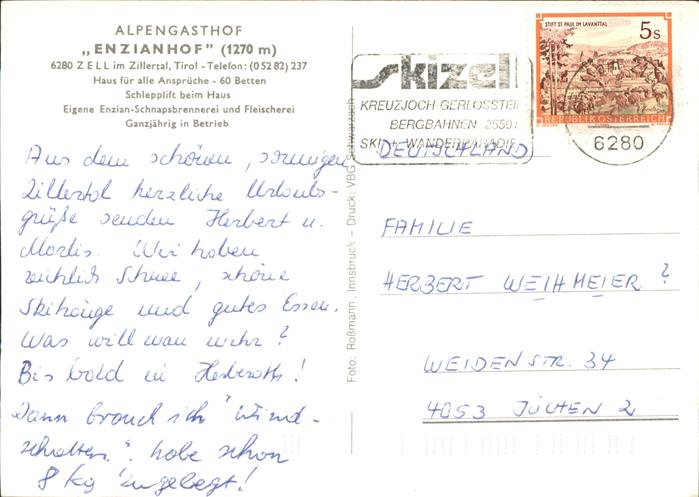 ALPENGASTHOF
„ENZIANHOF” (1270 m)
6280 ZELL im Zillertal, Tirol - Telefon: (0 52 82) 237
Haus für alle Ansprüche - 60 Betten
Schlepplift beim Haus
Eigene Enzian-Schnapsbrennerei und Fleischerei
Ganzjährig in Betrieb
Aus dem schönen, sonnigen
Zillertal herzliche Urlaubs-
grüße senden Herbert u.
Marlis. Wir haben
reichlich Schnee, schöne
Skihänge und gutes Essen.
Was will man mehr?
Bis bald in Herberath!
Dann brauch ich "Wind-
schatten". habe schon
8 kg zugelegt!
Foto: Roßmann, Innsbruck – Druck: VBG Schwarzach
skizell
KREUZJOCH-GERLOSSTEIN
BERGBAHNEN 2559
SKI- + WANDERPARADIES
STIFT ST. PAUL IM LAVANTTAL
5s
REPUBLIK ÖSTERREICH
6280
DEUTSCHLAND
FAMILIE
HERBERT WEIHMEIER ?
WEIDENSTR. 34
4053 JÜCHEN 2